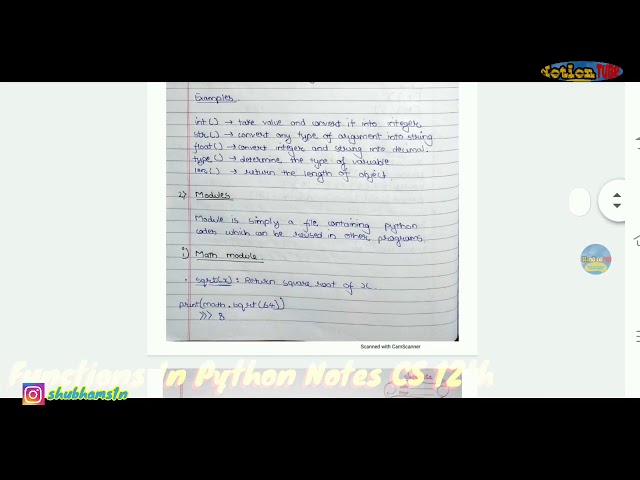 Notion TUBE
Examples.
int( ) → take value and convert it into integer
str( ) → convert any type of argument into string
float( ) → convert integer and string into decimal.
type( ) → determine the type of variable
len( ) → return the length of object.
2) Modules
Module is simply a file containing python
codes which can be reused in other programs.
i) Math module
• sqrt(x) : Return square root of x.
print(math.sqrt(64))
>>> 8
Scanned with CamScanner
Functions In Python Notes CS 12th
shubhams1n